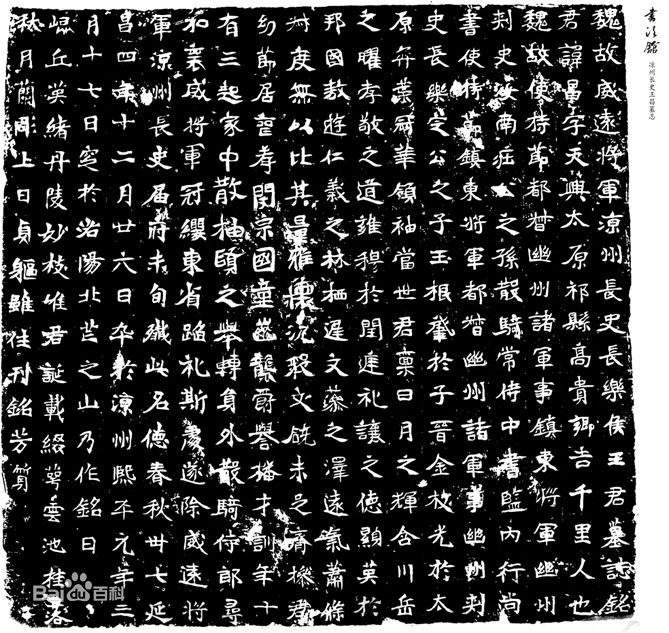 魏故威遠將軍涼州長史長樂侯王君墓誌銘
君諱昌字天興太原祁縣高貴鄉吉千里人也
魏故使持節都督幽州諸軍事鎮東將軍幽州
刾史汝南莊公之孫散騎常侍中書監內行尚
書使持節鎮東將軍都督幽州諸軍事幽州刾
史長樂定公之子玉根肇於子晉金枝光於太
原弈葉冠華領袖當世君稟日月之輝含川岳
之曜孝敬之道誰積於閨庭礼讓之德顯英於
邦國敖遊仁義之林栖遲文藻之澤遠氣蕭條
州度無以比其量雅懷沉毅文饒未足齊操君
幼節居童孝聞宗國童齔襲爵譽播才訓年十
有三起家中散抽頤之舉轉身外散騎侍郎尋
加襄威將軍冠纓東省蹈礼斯處遂除威遠將
軍涼州長史居府未旬殲此名德春秋卅七延
昌四年十二月廿六日卒於涼州熙平元年三
月十七日窆於洛陽北芒之山乃作銘曰
崐丘英緒丹陵妙枝唯君誕載綴萼雲池桂春
秋月蘭彫上日貞軀雖往刊銘芳質
凉州长史王昌墓志
Bai百科